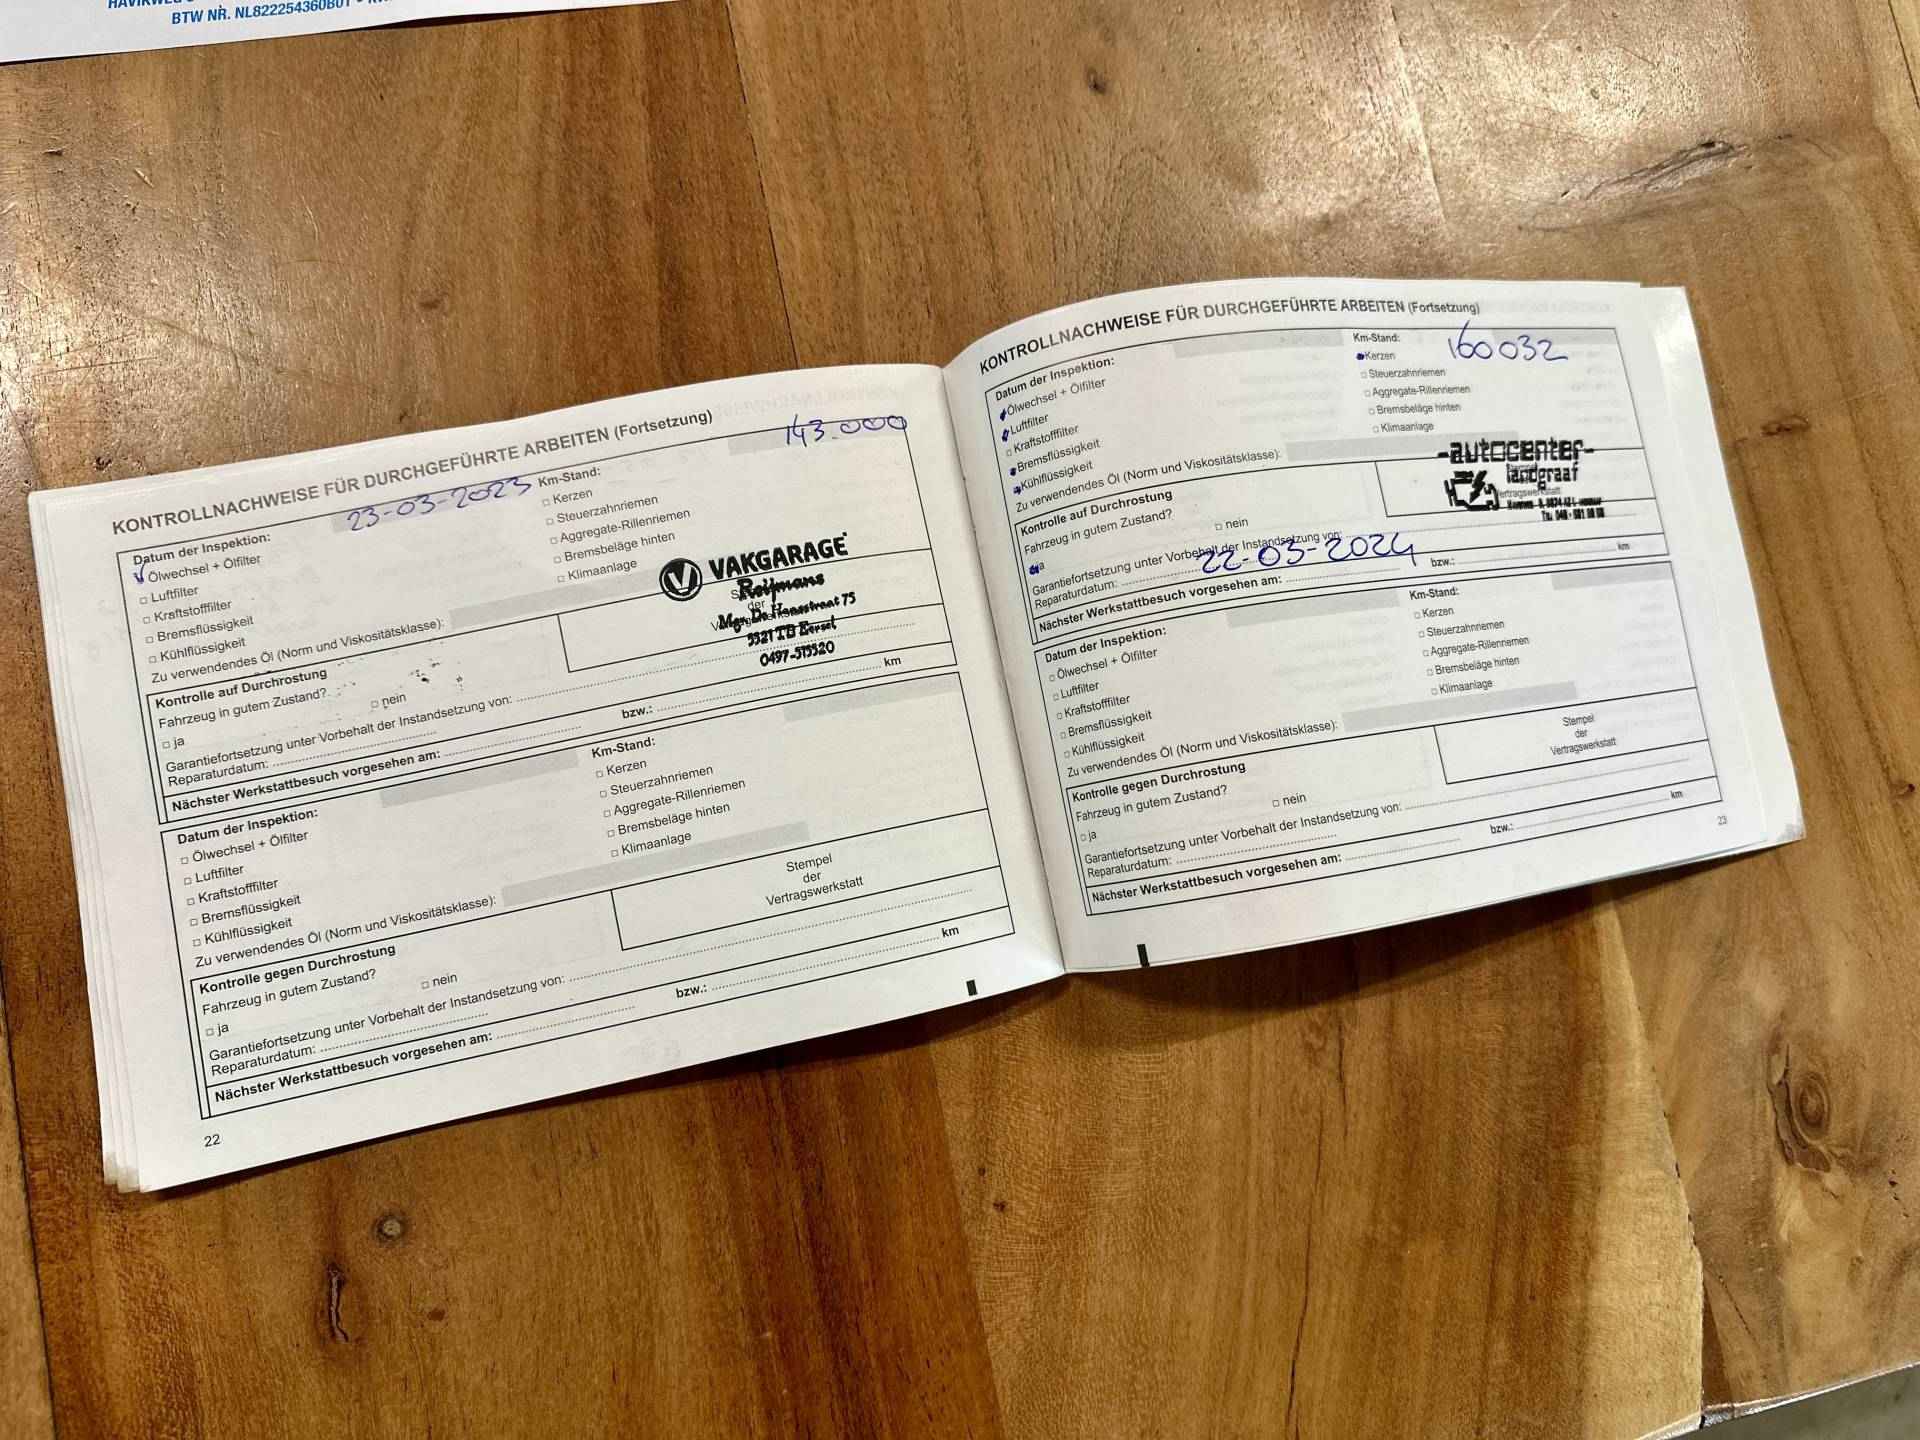 BTW NR. NL822254360B01
KONTROLLNACHWEISE FÜR DURCHGEFÜHRTE ARBEITEN (Fortsetzung)
Datum der Inspektion: 23-03-2023 Km-Stand: 143.000
Ölwechsel + Ölfilter
Luftfilter
Kraftstofffilter
Bremsflüssigkeit
Kühlflüssigkeit
Kerzen
Steuerzahnriemen
Aggregate-Rillenriemen
Bremsbeläge hinten
Klimaanlage
Zu verwendendes Öl (Norm und Viskositätsklasse):
VAKGARAGE
Reijmans
Mgr. De Haasstraat 75
5521 TD Eersel
0497-515520
Kontrolle auf Durchrostung
Fahrzeug in gutem Zustand?
ja
nein
Garantiefortsetzung unter Vorbehalt der Instandsetzung von:
Reparaturdatum:
Nächster Werkstattbesuch vorgesehen am: bzw.: km
Datum der Inspektion: Km-Stand:
Ölwechsel + Ölfilter
Luftfilter
Kraftstofffilter
Bremsflüssigkeit
Kühlflüssigkeit
Kerzen
Steuerzahnriemen
Aggregate-Rillenriemen
Bremsbeläge hinten
Klimaanlage
Zu verwendendes Öl (Norm und Viskositätsklasse):
Stempel
der
Vertragswerkstatt
Kontrolle gegen Durchrostung
Fahrzeug in gutem Zustand?
ja
nein
Garantiefortsetzung unter Vorbehalt der Instandsetzung von:
Reparaturdatum:
Nächster Werkstattbesuch vorgesehen am: bzw.: km
22
KONTROLLNACHWEISE FÜR DURCHGEFÜHRTE ARBEITEN (Fortsetzung)
Datum der Inspektion: Km-Stand: 160032
Ölwechsel + Ölfilter
Luftfilter
Kraftstofffilter
Bremsflüssigkeit
Kühlflüssigkeit
Kerzen
Steuerzahnriemen
Aggregate-Rillenriemen
Bremsbeläge hinten
Klimaanlage
Zu verwendendes Öl (Norm und Viskositätsklasse):
-autocenter-
landgraaf
Vertragswerkstatt
Kontrolle auf Durchrostung
Fahrzeug in gutem Zustand?
ja
nein
Garantiefortsetzung unter Vorbehalt der Instandsetzung von:
Reparaturdatum: 22-03-2024
Nächster Werkstattbesuch vorgesehen am: bzw.: km
Datum der Inspektion: Km-Stand:
Ölwechsel + Ölfilter
Luftfilter
Kraftstofffilter
Bremsflüssigkeit
Kühlflüssigkeit
Kerzen
Steuerzahnriemen
Aggregate-Rillenriemen
Bremsbeläge hinten
Klimaanlage
Zu verwendendes Öl (Norm und Viskositätsklasse):
Stempel
der
Vertragswerkstatt
Kontrolle gegen Durchrostung
Fahrzeug in gutem Zustand?
ja
nein
Garantiefortsetzung unter Vorbehalt der Instandsetzung von:
Reparaturdatum:
Nächster Werkstattbesuch vorgesehen am: bzw.: km
23